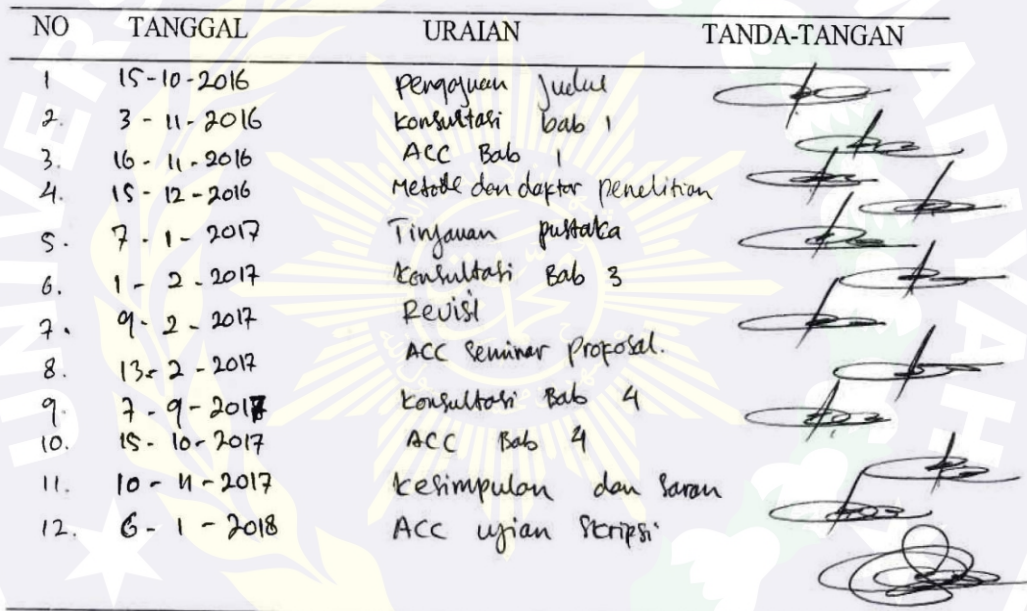 NO TANGGAL URAIAN TANDA-TANGAN
1 15-10-2016 Pengajuan Judul
2. 3-11-2016 Konsultasi bab 1
3. 16-11-2016 ACC Bab 1
4. 15-12-2016 Metode dan daftar penelitian
5. 7-1-2017 Tinjauan pustaka
6. 1-2-2017 Konsultasi Bab 3
7. 9-2-2017 Revisi
8. 13-2-2017 ACC Seminar Proposal.
9. 7-9-2017 Konsultasi Bab 4
10. 15-10-2017 ACC Bab 4
11. 10-11-2017 Kesimpulan dan Saran
12. 6-1-2018 ACC ujian Skripsi